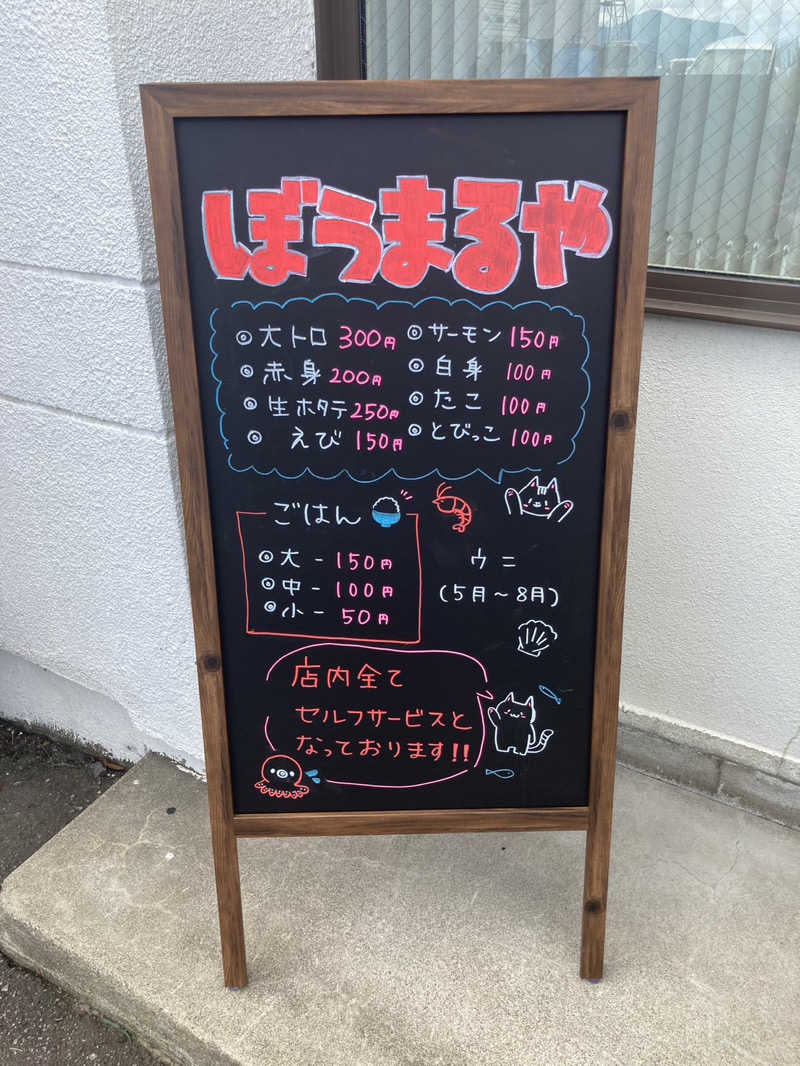 ぼうまるや
◎大トロ 300円 ◎サーモン 150円
◎赤身 200円 ◎白身 100円
◎生ホタテ 250円 ◎たこ 100円
◎えび 150円 ◎とびっこ 100円
ごはん
◎大 - 150円
◎中 - 100円
◎小 - 50円
ウニ
(5月〜8月)
店内全て
セルフサービスと
なっております!!